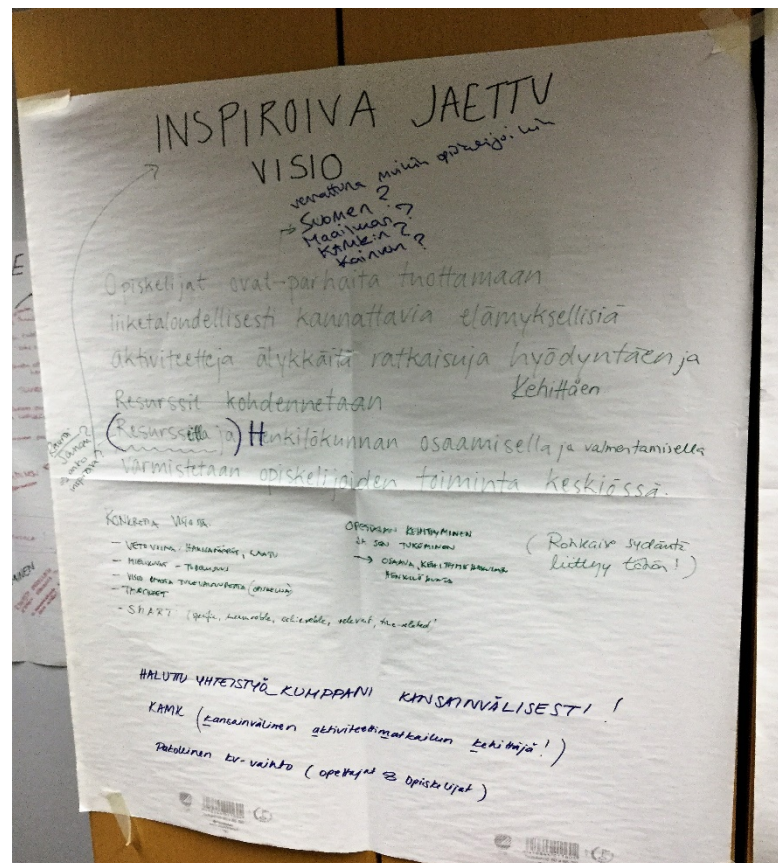 INSPIROIVA JAETTU
VISIO
verrattuna muihin opiskelijoihin
→ Suomen?
Maailman?
KAMKin?
Kainuun?
Opiskelijat ovat parhaita tuottamaan
liiketaloudellisesti kannattavia elämyksellisiä
aktiviteetteja älykkäitä ratkaisuja hyödyntäen ja
Kehittäen
Resurssit kohdennetaan
(Resursseilla ja) Henkilökunnan osaamisella ja valmentamisella
varmistetaan opiskelijoiden toiminta keskiössä.
inspiroiva?
VISIOTA
- VETOVOIMA: LAATU
- SMART (measurable, achievable, relevant, time-related)
KEHITTYMINEN
JA SEN TUKEMINEN
→ OSAAVA,
HENKILÖKUNTA
(Rohkaise sydäntä
liittyy tähän!)
HALUTTU YHTEISTYÖKUMPPANI KANSAINVÄLISESTI!
KAMK (kansainvälinen aktiviteettimatkailun kehittäjä!)
Pakollinen kv-vaihto (opettajat & opiskelijat)